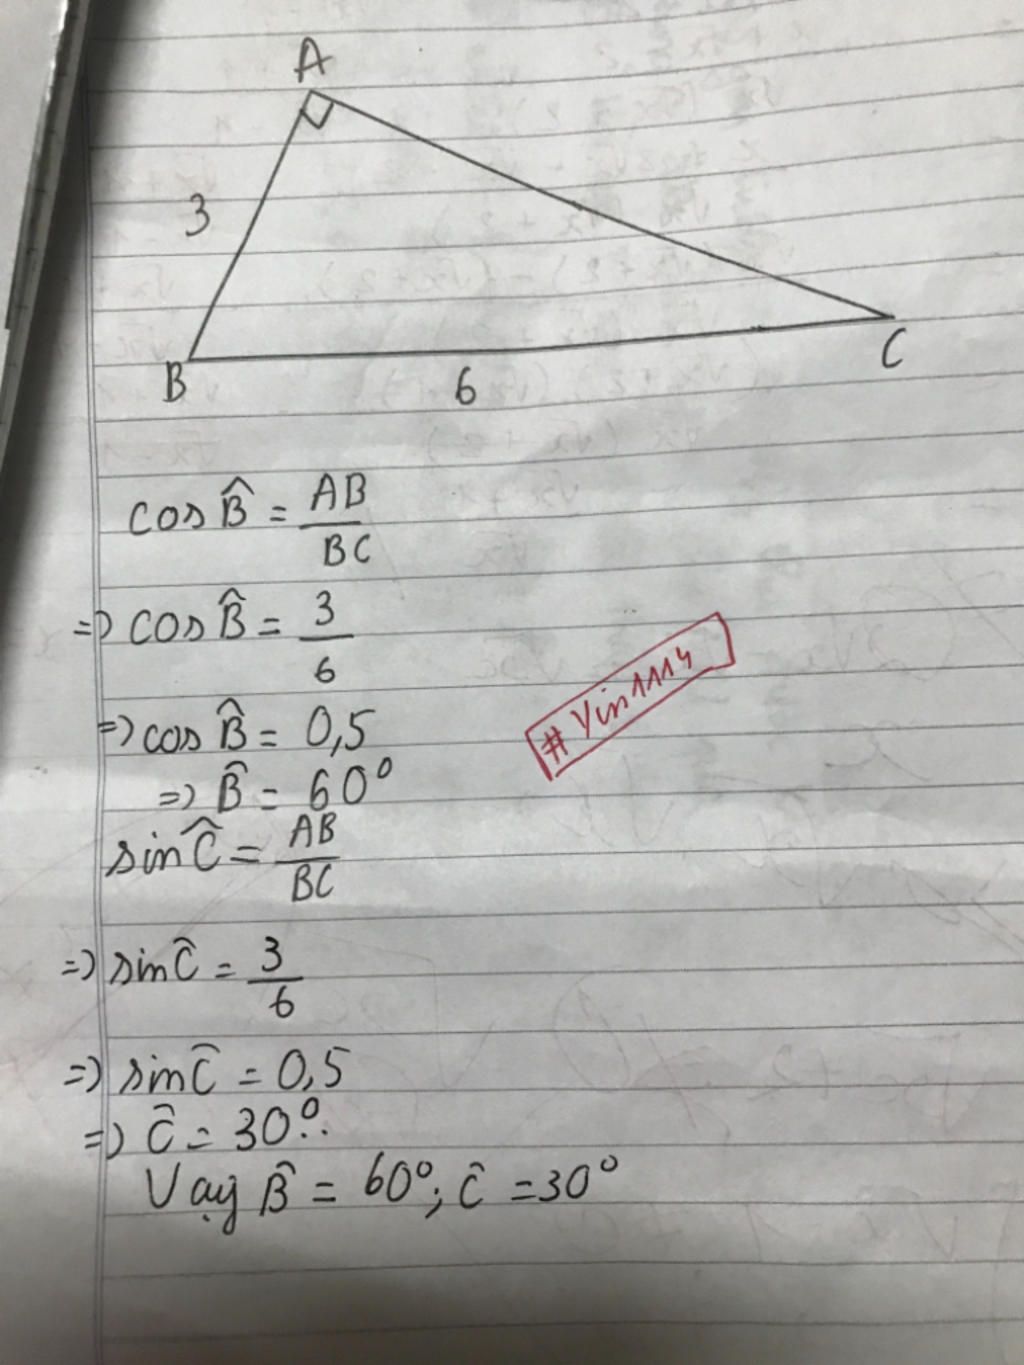 A
3
B
6
C
cos B̂ = AB/BC
=> cos B̂ = 3/6
=> cos B̂ = 0,5
=> B̂ = 60°
sin Ĉ = AB/BC
=> sin Ĉ = 3/6
=> sin Ĉ = 0,5
=> Ĉ = 30°.
Vậy B̂ = 60°; Ĉ = 30°
# Yin1114